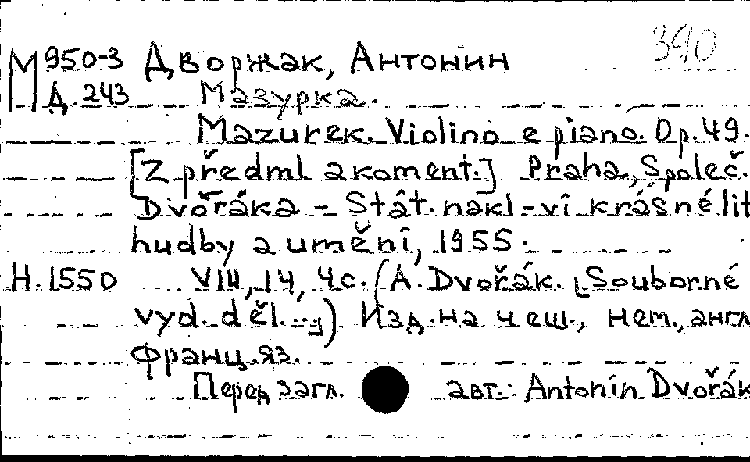 390
М 950-3 Дворжак, Антонин
Д. 243 Мазурка.
Mazurek. Violino e piano. Op. 49.
[Z předml. a koment.] Praha, Společ.
Dvořáka - Stát. nakl-ví krásné lit
hudby a umění, 1955.
Н. 1550 VIII, 14, 4 с. (A. Dvořák. [Souborné
vyd. děl...]) Изд. на чеш., нем., англ
франц. яз.
Перед загл. авт.: Antonín Dvořák